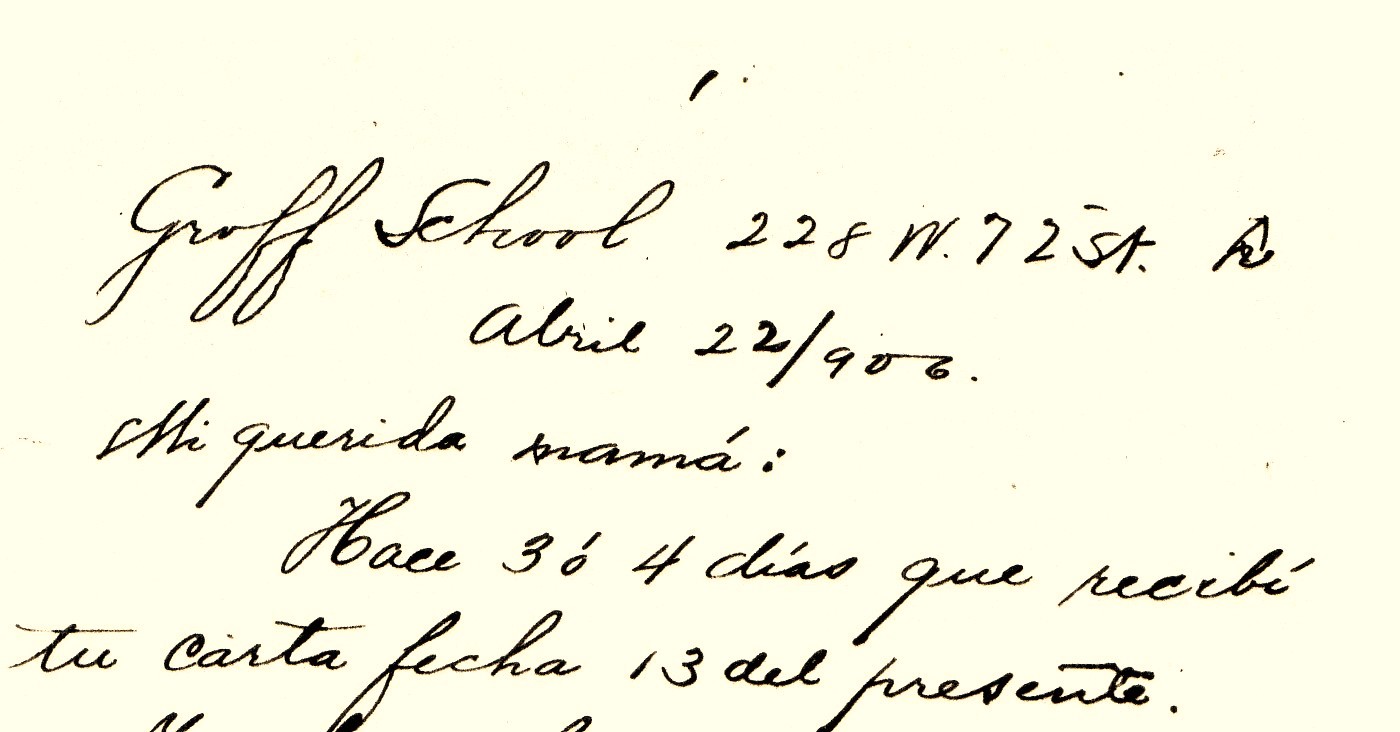 Groff School 228 W. 72 St.
Abril 22/906.
Mi querida mamá:
Hace 3 ó 4 días que recibí
tu carta fecha 13 del presente.